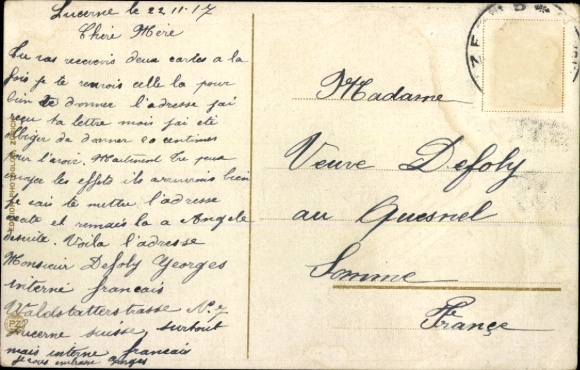 Lucerne le 22 11-17
Chère Mère
Tu vas recevoir deux cartes a la
fois je te renvois celle la pour
bien te donner l'adresse j'ai
reçu ta lettre mais j'ai été
obliger de donner 20 centimes
pour l'avoir. Maintenant tu peux
les effets ils bien
je vais te mettre l'adresse
exacte et remais la a Angele
desuite. Voila l'adresse
Monsieur Defoly Georges
interné français
Waldstatterstrasse No 7
Lucerne suisse, surtout
mais interné français
je vous embrasse Georges
Madame
Veuve Defoly
au Quesnel
Somme
France
PZ